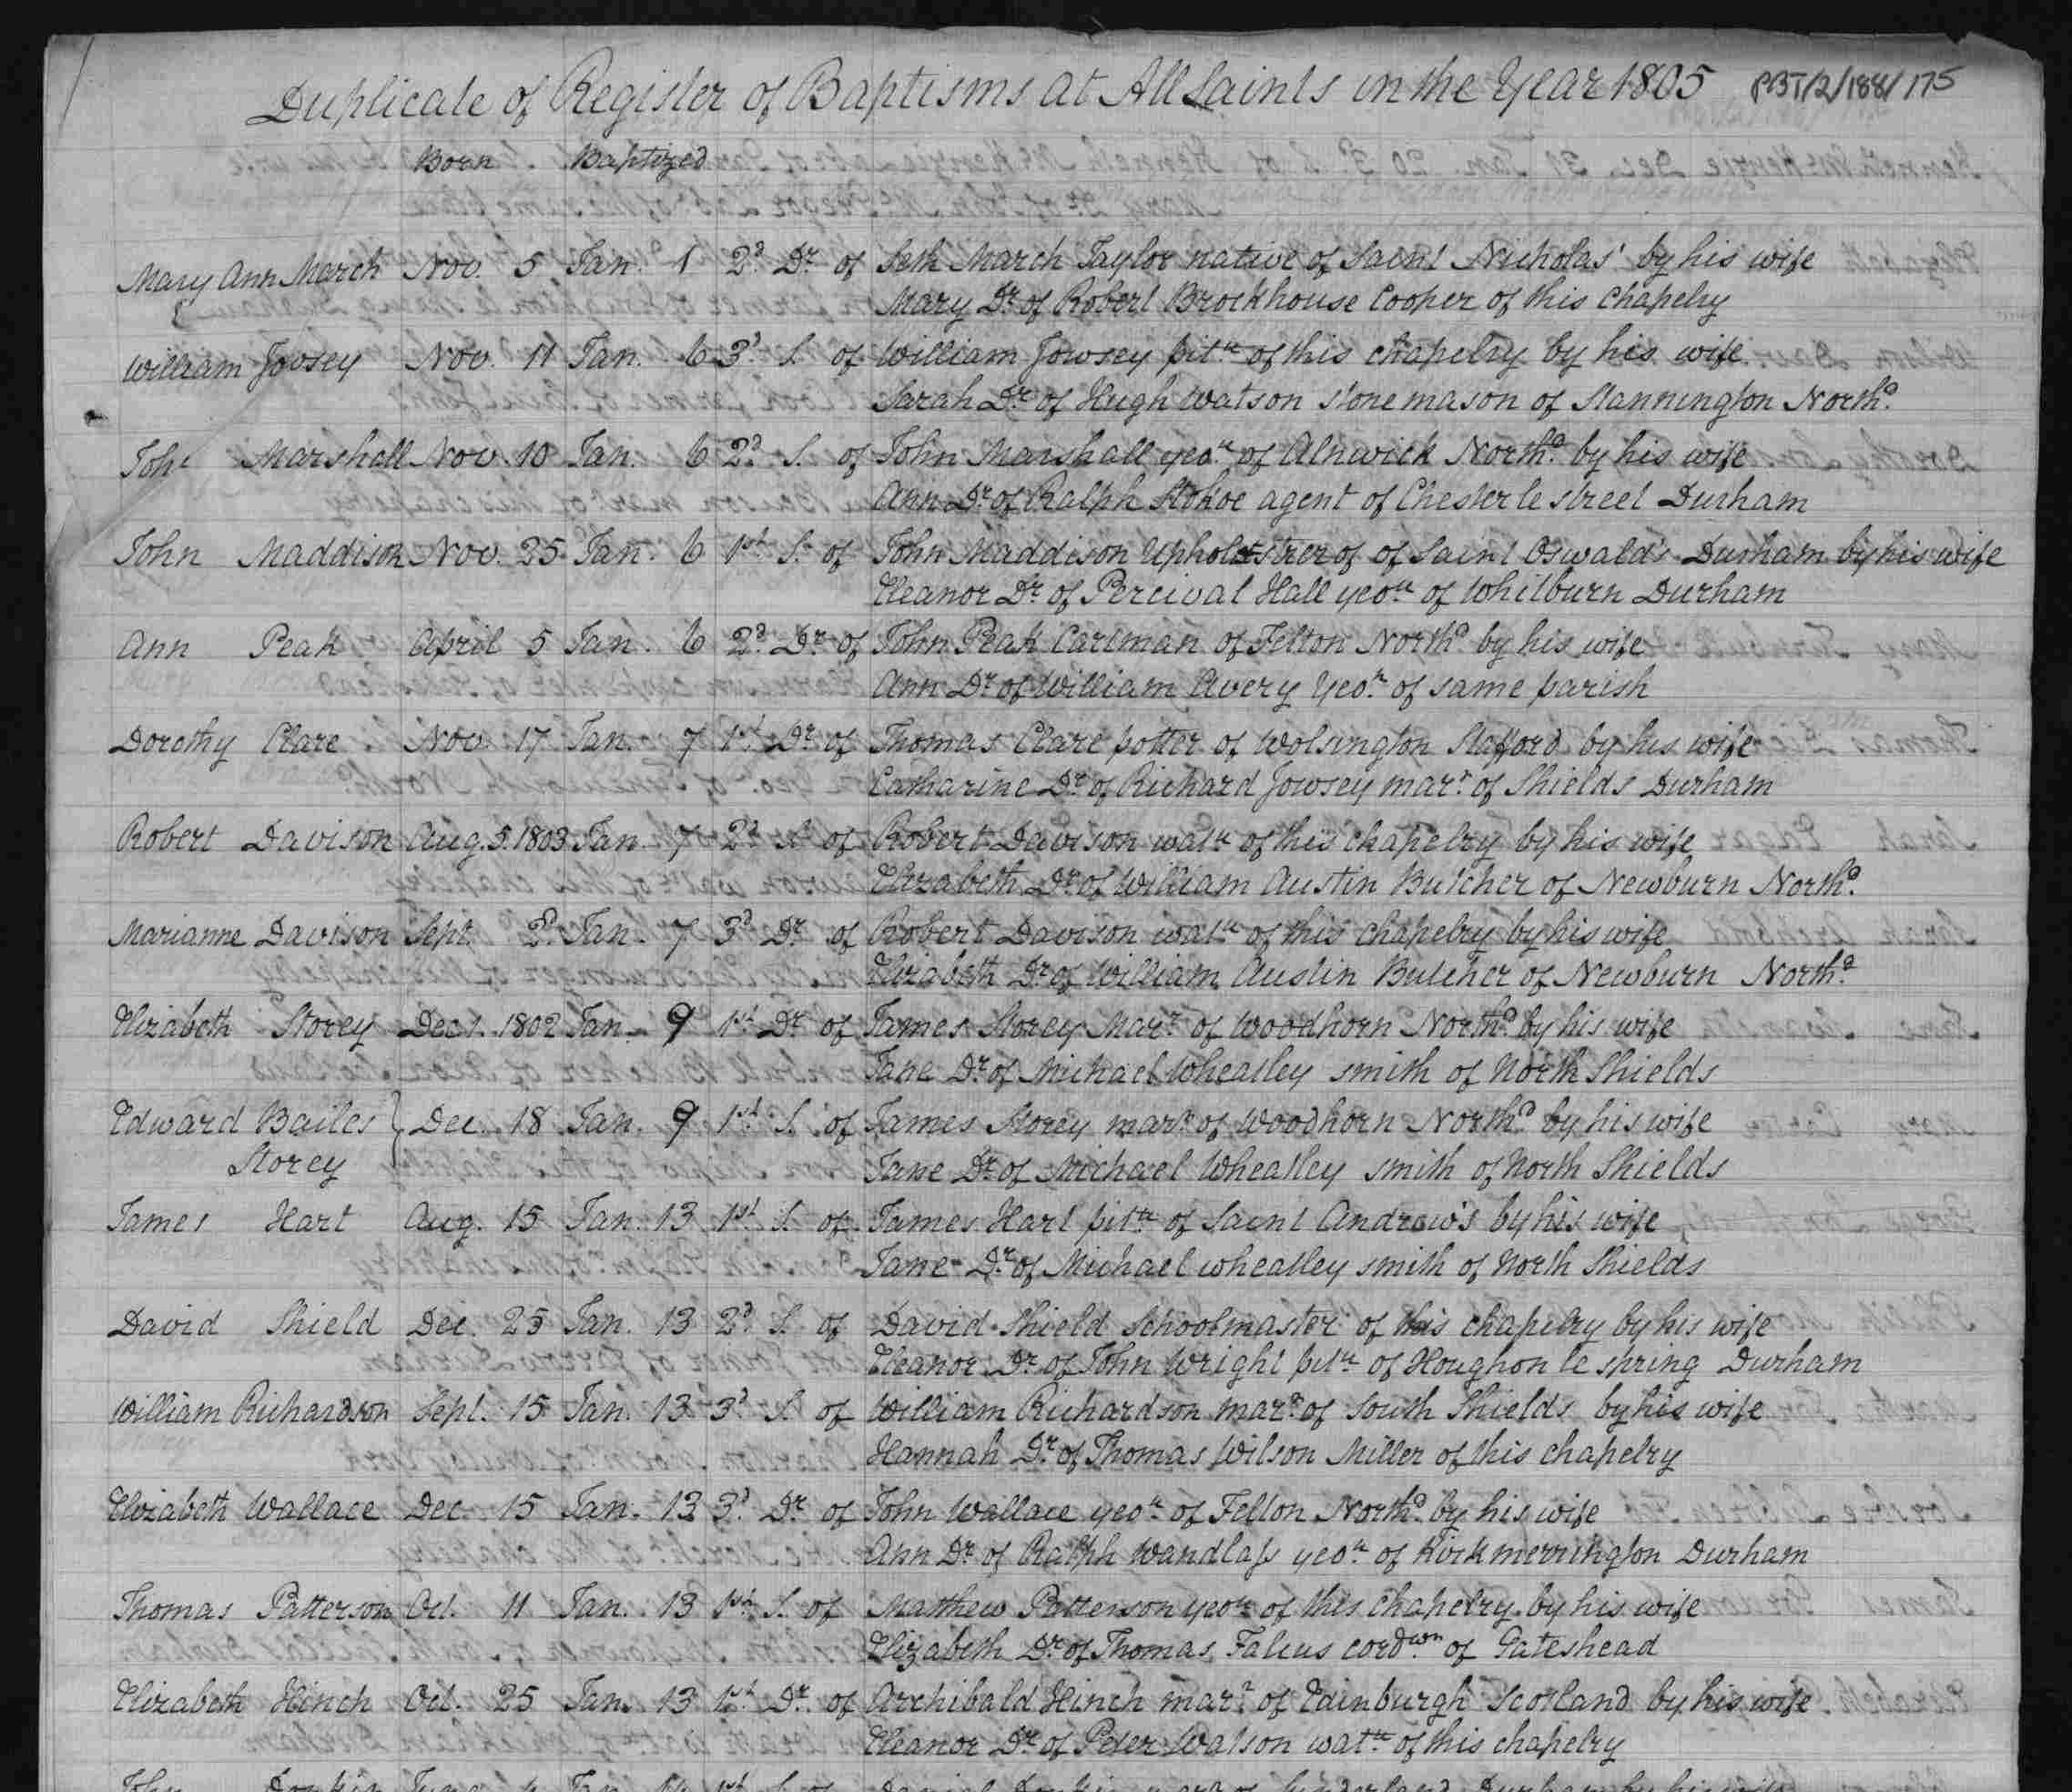 Duplicate of Register of Baptisms at All Saints in the Year 1805 PBT/2/188/175
Born Baptized
Mary Ann March Nov. 5 Jan. 1 2d Dr. of Seth March Taylor native of Saint Nicholas' by his wife
Mary Dr. of Robert Brockhouse Cooper of this Chapelry
William Jowsey Nov. 11 Jan. 6 3d S. of William Jowsey pitn of this chapelry by his wife
Sarah Dr. of Hugh Watson stone mason of Stannington Northd.
John Marshall Nov. 10 Jan. 6 2d S. of John Marshall yeon of Alnwick Northd. by his wife
Ann Dr. of Ralph Stokoe agent of Chester le street Durham
John Maddison Nov. 25 Jan. 6 1st S. of John Maddison Upholsterer of of Saint Oswald's Durham by his wife
Eleanor Dr. of Percival Hall yeon of Whitburn Durham
Ann Peak April 5 Jan. 6 2d Dr. of John Peak Cartman of Felton Northd. by his wife
Ann Dr. of William Avery Yeon of same parish
Dorothy Clare Nov. 17 Jan. 7 1st Dr. of Thomas Clare potter of Wolsington Stafford by his wife
Catharine Dr. of Richard Jowsey marr. of Shields Durham
Robert Davison Aug. 5. 1803 Jan. 7 2d S. of Robert Davison watn of this chapelry by his wife
Elizabeth Dr. of William Austin Butcher of Newburn Northd.
Marianne Davison Sept. 2d. Jan. 7 3d Dr. of Robert Davison watn of this chapelry by his wife
Elizabeth Dr. of William Austin Butcher of Newburn Northd.
Elizabeth Storey Dec 1. 1802 Jan. 9 1st Dr. of James Storey Marr. of Woodhorn Northd. by his wife
Jane Dr. of Michael Wheatley smith of North Shields
Edward Bailes } Dec. 18 Jan. 9 1st S. of James Storey marr. of Woodhorn Northd. by his wife
Storey Jane Dr. of Michael Wheatley smith of North Shields
James Hart Aug. 15 Jan. 13 1st S. of James Hart pitn of Saint Andrew's by his wife
Jane Dr. of Michael wheatley smith of North Shields
David Shield Dec. 25 Jan. 13 2d S. of David Shield Schoolmaster of this chapelry by his wife
Eleanor Dr. of John Wright pitn of Houghon le spring Durham
William Richardson Sept. 15 Jan. 13 3d S. of William Richardson marr. of South Shields by his wife
Hannah Dr. of Thomas Wilson Miller of this chapelry
Elizabeth Wallace Dec 15 Jan. 13 3d Dr. of John Wallace yeon of Felton Northd. by his wife
Ann Dr. of Ralph Wandlass yeon of Kirkmerrington Durham
Thomas Patterson Oct. 11 Jan. 13 1st S. of Matthew Patterson yeon of this chapelry by his wife
Elizabeth Dr. of Thomas Falcus cordwn. of Gateshead
Elizabeth Hinch Oct. 25 Jan. 13 1st Dr. of Archibald Hinch marr. of Edinburgh Scotland by his wife
Eleanor Dr. of Peter Watson watn of this chapelry
John Donkin June 4 Jan 14 1st S. of Daniel Donkin marr of Sunderland Durham by his wife